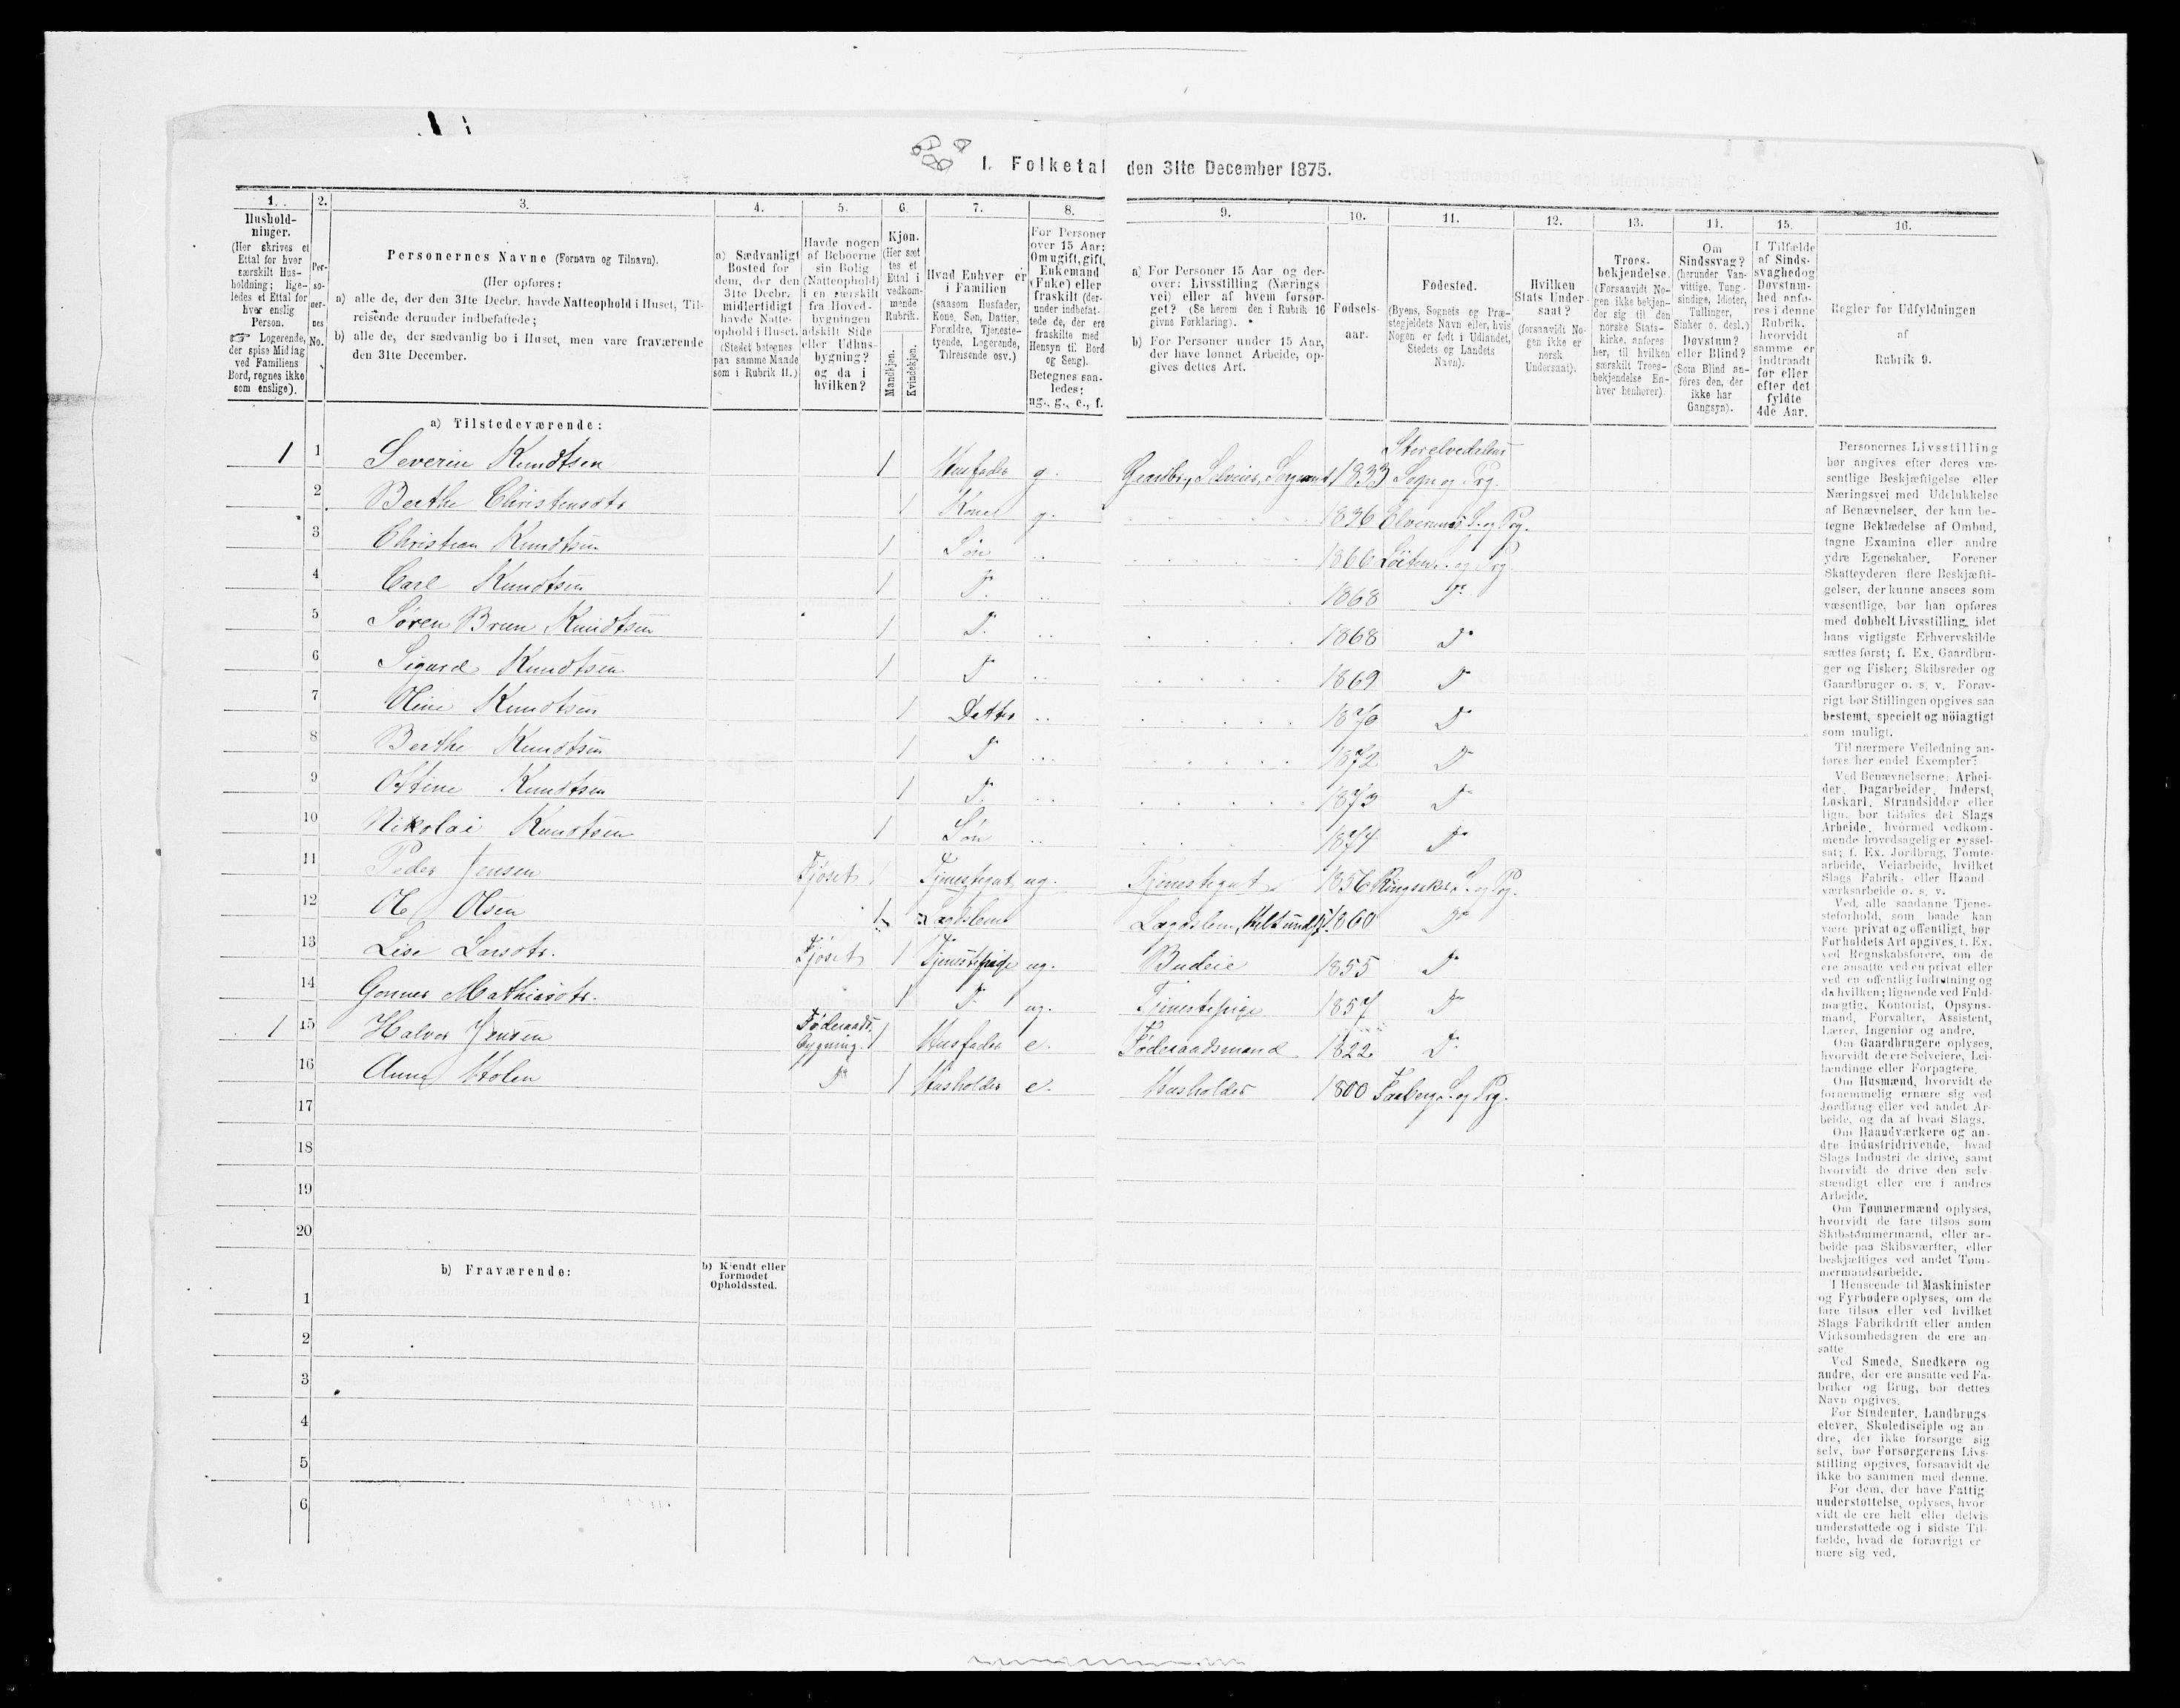 I. Folketal den 31te December 1875.
1. 2. 3. 4. 5. 6 7. 8. 9. 10. 11. 12. 13. 14. 15. 16.
Hushold-
ninger.
(Her skrives et
Ettal for hver
særskilt Hus-
holdning; lige-
ledes et Ettal for
hver enslig
Person.
☞ Logerende,
der spise Middag
ved Familiens
Bord, regnes ikke
som enslige).
Per-
so-
ner-
nes
No.
Personernes Navne (Fornavn og Tilnavn).
(Her opføres:
a) alle de, der den 31te Decbr. havde Natteophold i Huset, Til-
reisende derunder indbefattede;
b) alle de, der sædvanlig bo i Huset, men vare fraværende
den 31te December.
a) Sædvanligt
Bosted for
dem, der den
31te Decbr.
midlertidigt
havde Natte-
ophold i Huset.
(Stedet betegnes
paa samme Maade
som i Rubrik 11.)
Havde nogen
af Beboerne
sin Bolig
(Natteophold)
i en særskilt
fra Hoved-
bygningen
adskilt Side
eller Udhus-
bygning?
og da i
hvilken?
Kjøn.
(Her sæt
tes et
Ettal i
vedkom-
mende
Rubrik.
Mandkjøn.
Kvindekjøn.
Hvad Enhver er
i Familien
(saasom Husfader,
Kone, Søn, Datter,
Forældre, Tjeneste-
tyende, Logerende,
Tilreisende osv.)
For Personer
over 15 Aar:
Om ugift, gift,
Enkemand
(Enke) eller
fraskilt (der-
under indbefat-
tede de, der ere
fraskilte med
Hensyn til Bord
og Seng).
Betegnes saa-
ledes:
ug., g., e., f.
a) For Personer 15 Aar og der-
over: Livsstilling (Nærings
vei) eller af hvem forsør-
get? (Se herom den i Rubrik 16
givne Forklaring).
b) For Personer under 15 Aar,
der have lønnet Arbeide, op-
gives dettes Art.
Fødsels-
aar.
Fødested.
(Byens, Sognets og Præ-
stegjeldets Navn eller, hvis
Nogen er født i Udlandet,
Stedets og Landets
Navn).
Hvilken
Stats Under-
saat?
(forsaavidt No-
gen ikke er
norsk
Undersaat).
Troes-
bekjendelse.
(Forsaavidt No-
gen ikke bekjen-
der sig til den
norske Stats-
kirke, anføres
her, til hvilken
særskilt Troes-
bekjendelse En-
hver henhører)
Om
Sindssvag?
(herunder Van-
vittige, Tung-
sindige, Idioter,
Tullinger,
Sinker o. desl.)
Døvstum?
eller Blind?
(Som Blind an-
føres den, der
ikke har
Gangsyn).
I Tilfælde
af Sinds-
svaghed og
Døvstum-
hed anfø-
res i denne
Rubrik,
hvorvidt
samme er
indtraadt
før eller
efter det
fyldte
4de Aar.
Regler for Udfyldningen
af
Rubrik 9.
a) Tilstedeværende:
1 1 Severin Knudtsen 1 Husfader g. Gaardbr., Selveier, Sergeant 1833 Storelvedalens Sogn og Prg.
2 Berthe Christensdtr 1 Kone g. 1836 Elverums S. og Prg.
3 Christian Knudtsen 1 Søn 1866 Løiten S. og Prg
4 Carl Knudtsen 1 Do 1868 Do
5 Søren Brun Knudtsen 1 Do 1868 Do
6 Sigurd Knudtsen 1 Do 1869 Do
7 Oline Knudtsen 1 Datter 1870 Do
8 Berthe Knudtsen 1 Do 1872 Do
9 Ottine Knudtsen 1 Do 1873 Do
10 Nikolai Knudtsen 1 Søn 1874 Do
11 Peder Jensen Fjøset 1 Tjenestegut ug. Tjenestegut 1856 Ringsaker S. og Prg.
12 Ole Olsen 1 Lægdslem Lægdslem, 1860 Do
13 Lise Larsdtr. Fjøset 1 Tjenestepige ug. Budeie 1855 Do
14 Mathiasdtr. 1 Do ug. Tjenestepige 1857 Do
1 15 Halvor Jensen Føderaads-
bygning. 1 Husfader e. Føderaadsmand 1822 Do
16 Anna Holen Do 1 Husholder e. Husholder 1800 Faaberg S. og Prg.
17
18
19
20
b) Fraværende:
b) Kjendt eller
formodet
Opholdssted.
1
2
3
4
5
6
Personernes Livsstilling
bør angives efter deres væ-
sentlige Beskjæftigelse eller
Næringsvei med Udelukkelse
af Benævnelser, der kun be-
tegne Beklædelse af Ombud,
tagne Examina eller andre
ydre Egenskaber. Forener
Skatteyderen flere Beskjæfti-
gelser, der kunne ansees som
væsentlige, bør han opføres
med dobbelt Livsstilling, idet
hans vigtigste Erhvervskilde
sættes først; f. Ex. Gaardbru-
ger og Fisker; Skibsreder og
Gaardbruger o. s. v. Forøv-
rigt bør Stillingen opgives saa
bestemt, specielt og nøiagtigt
som muligt.
Til nærmere Veiledning an-
føres her endel Exempler:
Ved Benævnelserne: Arbei-
der, Dagarbeider, Inderst,
Løskarl, Strandsidder eller
lign. bør tilføies det Slags
Arbeide, hvormed vedkom-
mende hovedsagelig er syssel-
sat; f. Ex. Jordbrug, Tomte-
arbeide, Veiarbeide, hvilket
Slags Fabrik- eller Haand
værksarbeide o. s. v.
Ved alle saadanne Tjene-
steforhold, som baade kan
være privat og offentligt, bør
Forholdets Art opgives, f. Ex.
ved Regnskabsførere, om de
ere ansatte ved en privat eller
ved en offentlig Indretning og
da hvilken; lignende ved Fuld-
mægtig, Kontorist, Opsyns-
mand, Forvalter, Assistent,
Lærer, Ingeniør og andre.
Om Gaardbrugere oplyses,
hvorvidt de ere Selveiere, Lei-
lændinge eller Forpagtere.
Om Husmænd, hvorvidt de
fornemmelig ernære sig ved
Jordbrug eller ved andet Ar-
beide, og da af hvad Slags.
Om Haandværkere og an-
dre Industridrivende, hvad
Slags Industri de drive, samt
hvorvidt de drive den selv-
stændigt eller ere i andres
Arbeide.
Om Tømmermænd oplyses,
hvorvidt de fare tilsøs som
Skibstømmermænd, eller ar-
beide paa Skibsværfter, eller
beskjæftiges ved andet Tøm-
mermandsarbeide.
I Henseende til Maskinister
og Fyrbødere oplyses, om de
fare tilsøs eller ved hvilket
Slags Fabrikdrift eller anden
Virksomhedsgren de ere an-
satte.
Ved Smede, Snedkere og
andre, der ere ansatte ved Fa-
briker og Brug, bør dettes
Navn opgives.
For Studenter, Landbrugs
elever, Skoledisciple og an
dre, der ikke forsørge sig
selv, bør Forsørgerens Livs-
stilling opgives, forsaavidt de
ikke bo sammen med denne.
For dem, der have Fattig-
understøttelse, oplyses, hvor
vidt de ere helt eller delvis
understøttede og i sidste Til-
fælde, hvad de forøvrigt er
nære sig ved.